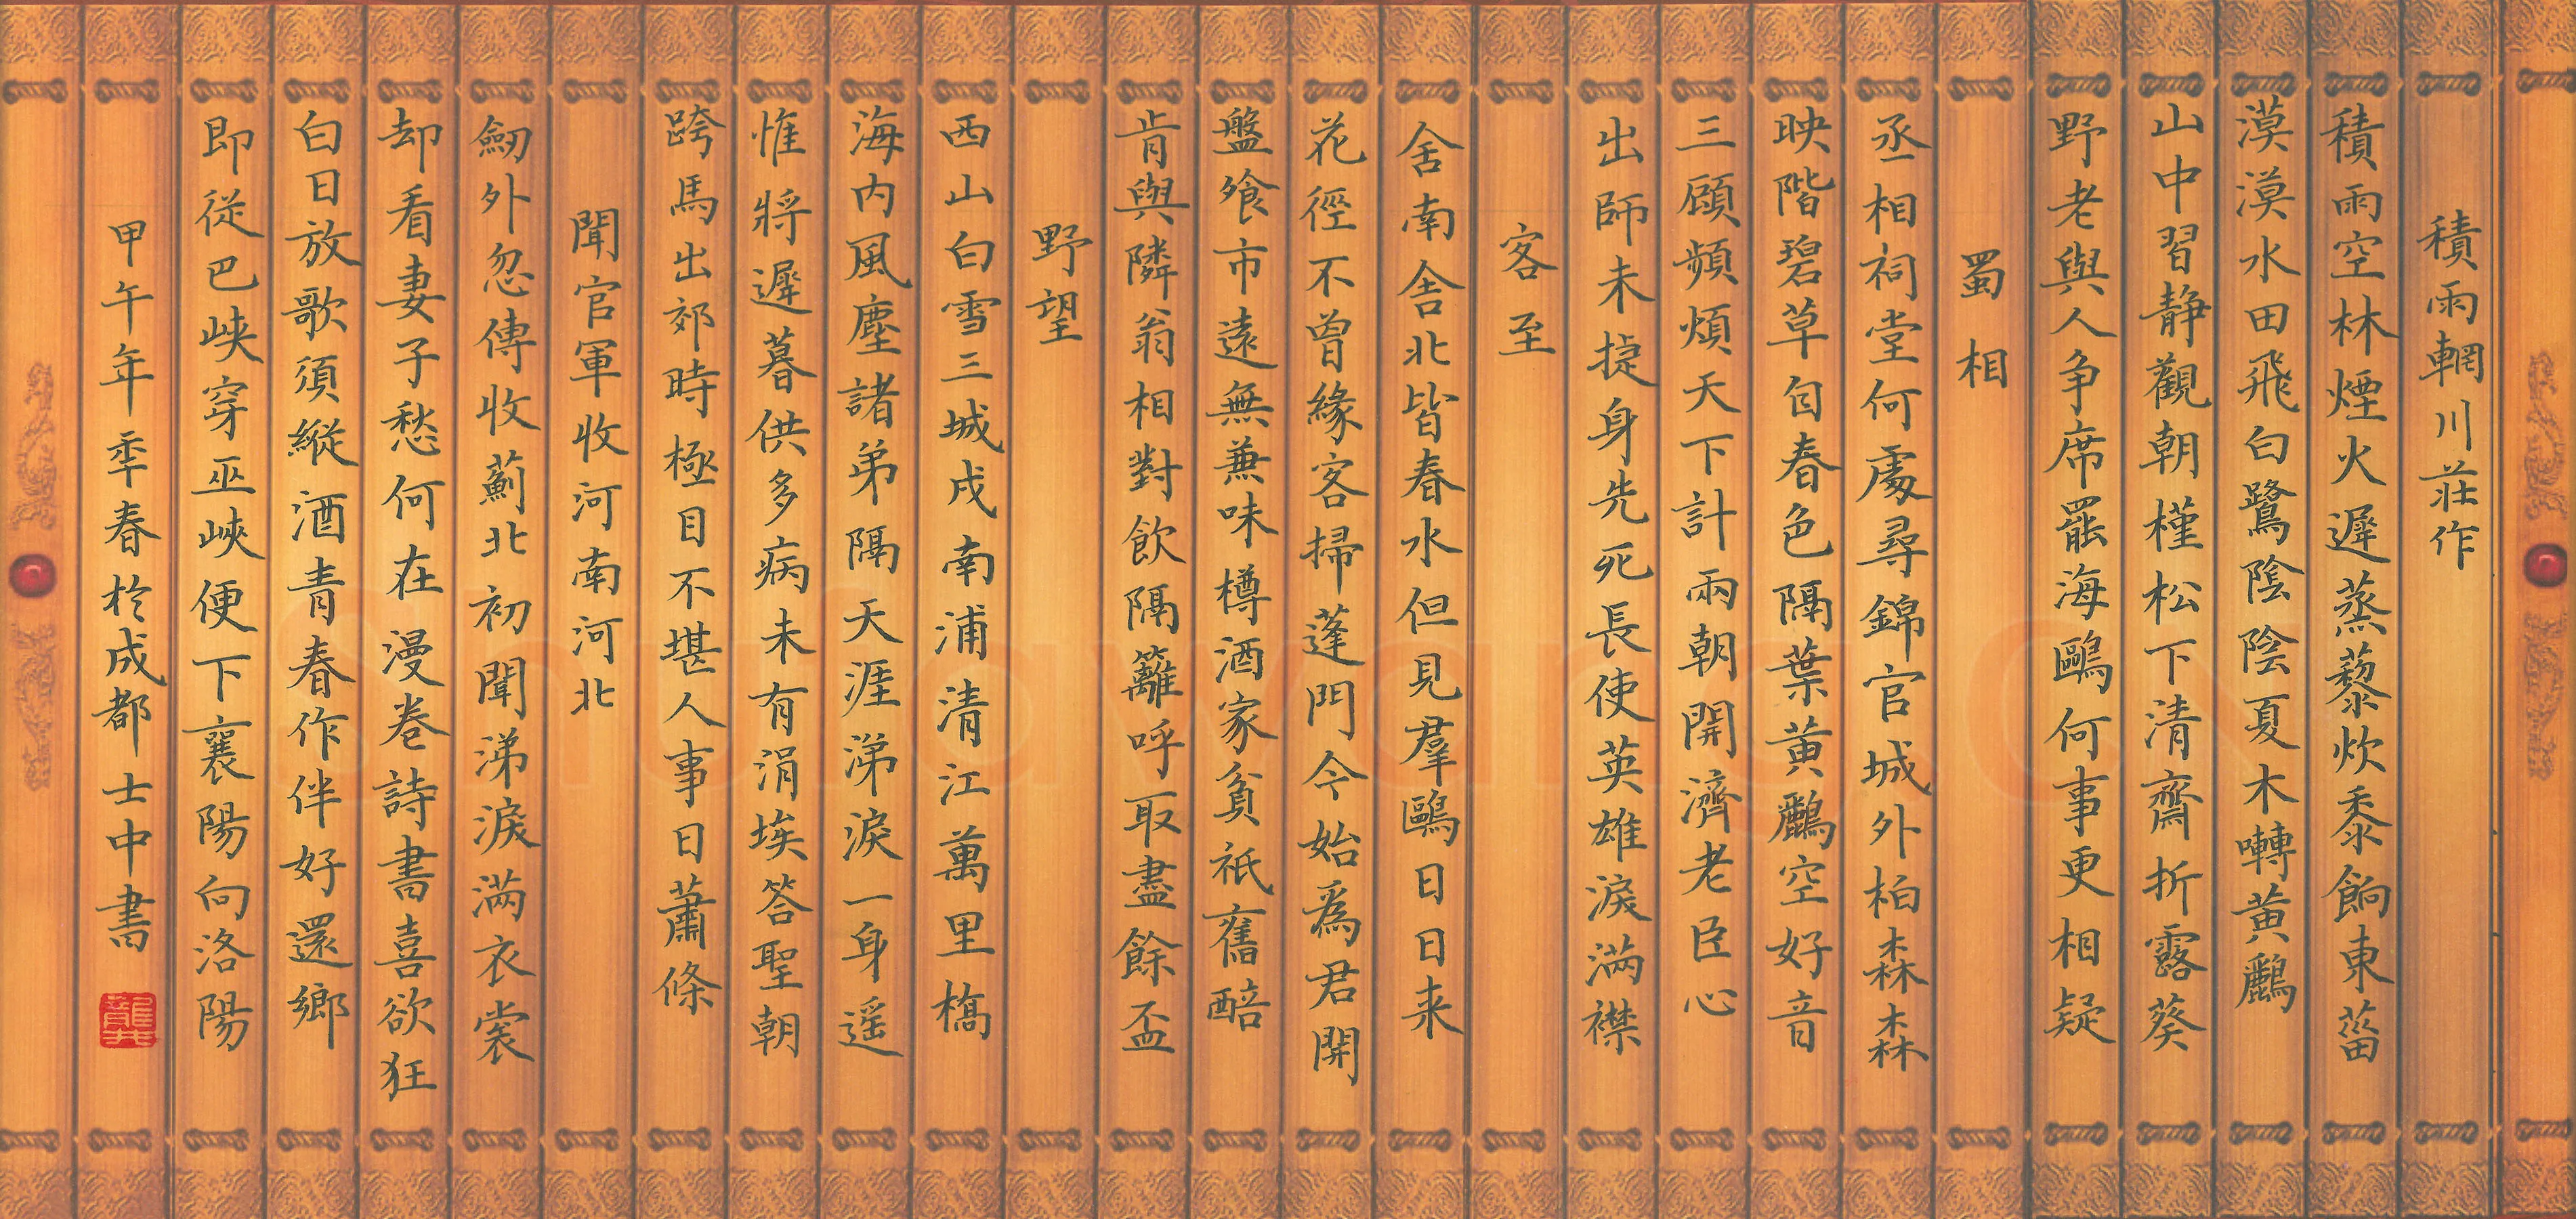 積雨輞川莊作
積雨空林煙火遲蒸藜炊黍餉東菑
漠漠水田飛白鷺陰陰夏木囀黄鸝
山中習静觀朝槿松下清齋折露葵
野老與人争席罷海鷗何事更相疑
蜀相
丞相祠堂何處尋錦官城外柏森森
映階碧草自春色隔葉黄鸝空好音
三顧頻煩天下計兩朝開濟老臣心
出師未捷身先死長使英雄淚滿襟
客至
舍南舍北皆春水但見羣鷗日日来
花徑不曾緣客掃蓬門今始爲君開
盤飧市遠無兼味樽酒家貧祇舊醅
肯與隣翁相對飲隔籬呼取盡餘盃
野望
西山白雪三城戍南浦清江萬里橋
海内風塵諸弟隔天涯涕淚一身遥
惟將遲暮供多病未有涓埃答聖朝
跨馬出郊時極目不堪人事日蕭條
聞官軍收河南河北
劒外忽傳收薊北初聞涕淚滿衣裳
却看妻子愁何在漫卷詩書喜欲狂
白日放歌須縱酒青春作伴好還鄉
即從巴峽穿巫峽便下襄陽向洛陽
甲午年季春於成都士中書
龔